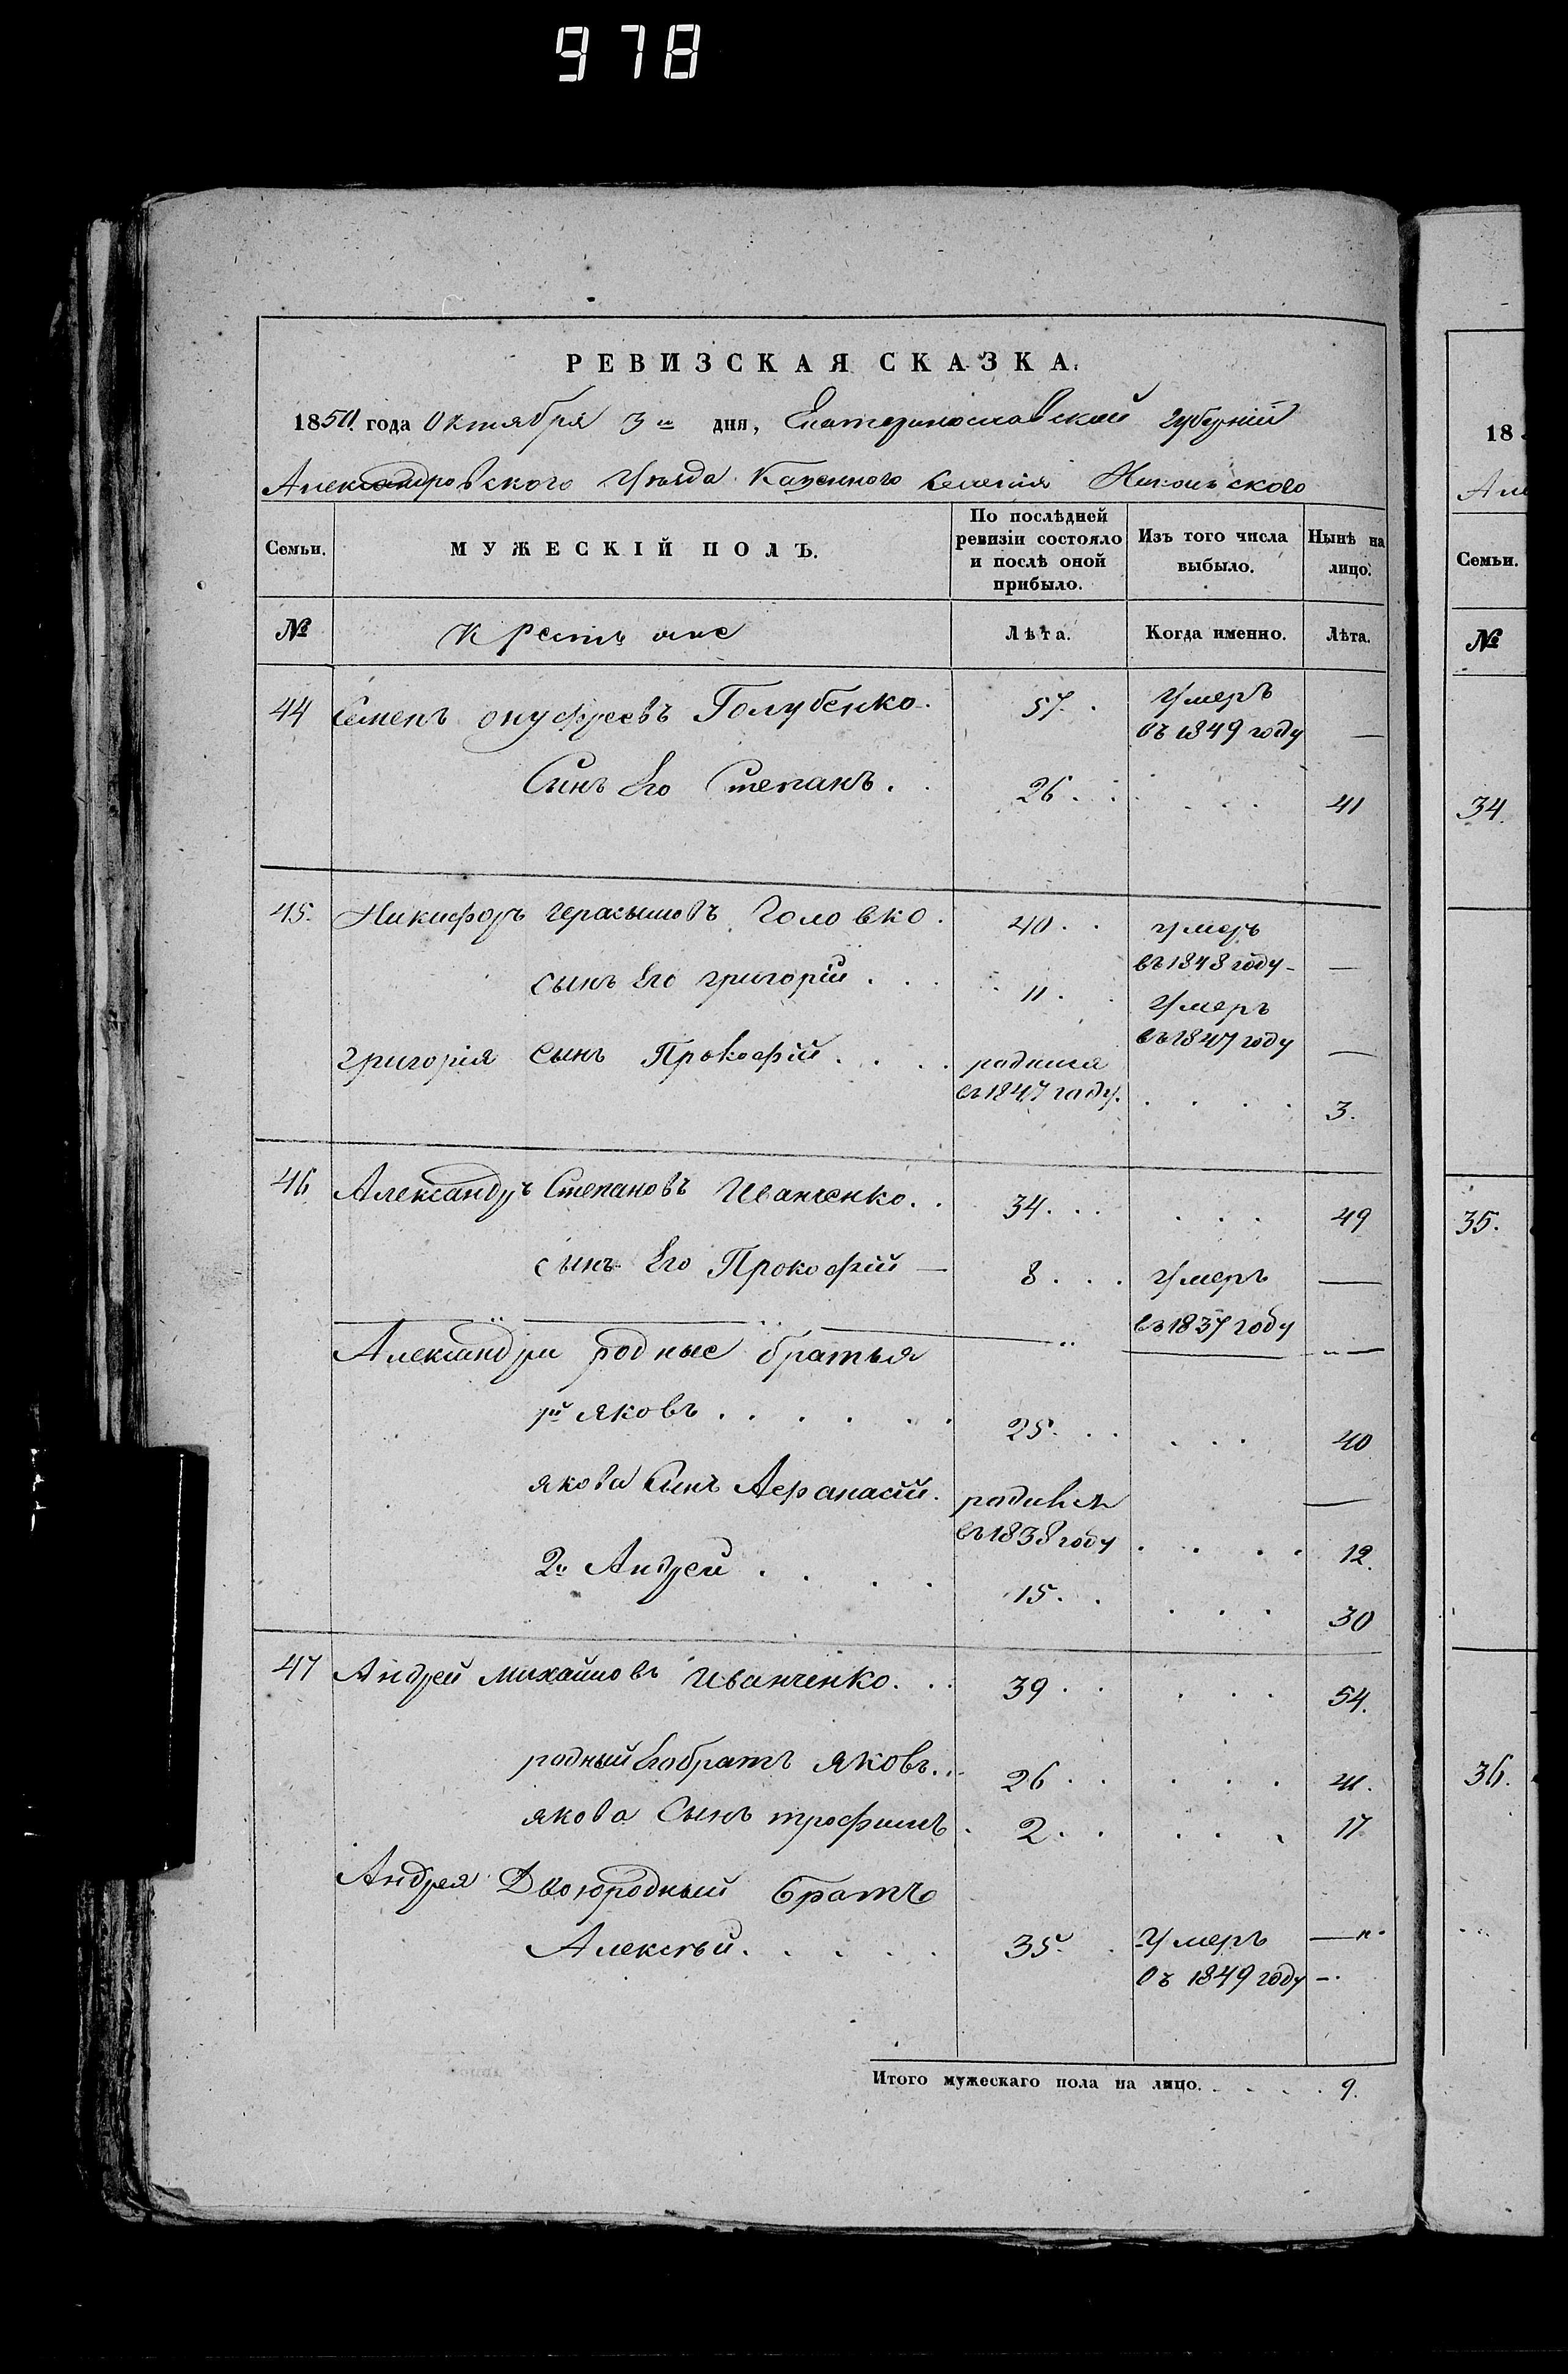 978
РЕВИЗСКАЯ СКАЗКА.
1850. года Октября 3го дня, Екатеринославской губерній
Александровского Уѣзда Казенного Селенія Никольского
Семьи. МУЖЕСКІЙ ПОЛЪ. По послѣдней ревизіи состояло и послѣ оной прибыло. Изъ того числа выбыло. Нынѣ на лицо.
№ Крестьяне Лѣта. Когда именно. Лѣта.
44 Семенъ онуфреевъ Голубенко. 57. Умеръ —
въ 1849 году
Сынъ Его Степанъ. 26. 41
45. Никифоръ герасымовъ Головко. 40. умеръ
въ 1848 году —
сынъ Его григорій. 11. Умеръ
въ 1847 году —
григорія Сынъ Прокофій. родился
въ 1847 году. 3.
46 Александръ Степановъ Иванченко. 34. 49
сынъ Его Прокофій — 8. Умеръ —
въ 1837 году
Александра родные братья
1й яковъ. 25. 40
якова Сынъ Афанасій. родился —
въ 1838 году 12.
2й Андрей. 15. 30
47 Андрей михайловъ Иванченко. 39. 54.
родный Его братъ яковъ. 26. 41.
якова Сынъ трофимъ. 2. 17
Андрея Двоюродный братъ
Алексѣй. 35. Умеръ —
въ 1849 году —
Итого мужескаго пола на лицо. 9.
18
Але
Семьи.
№
34.
35.
36.